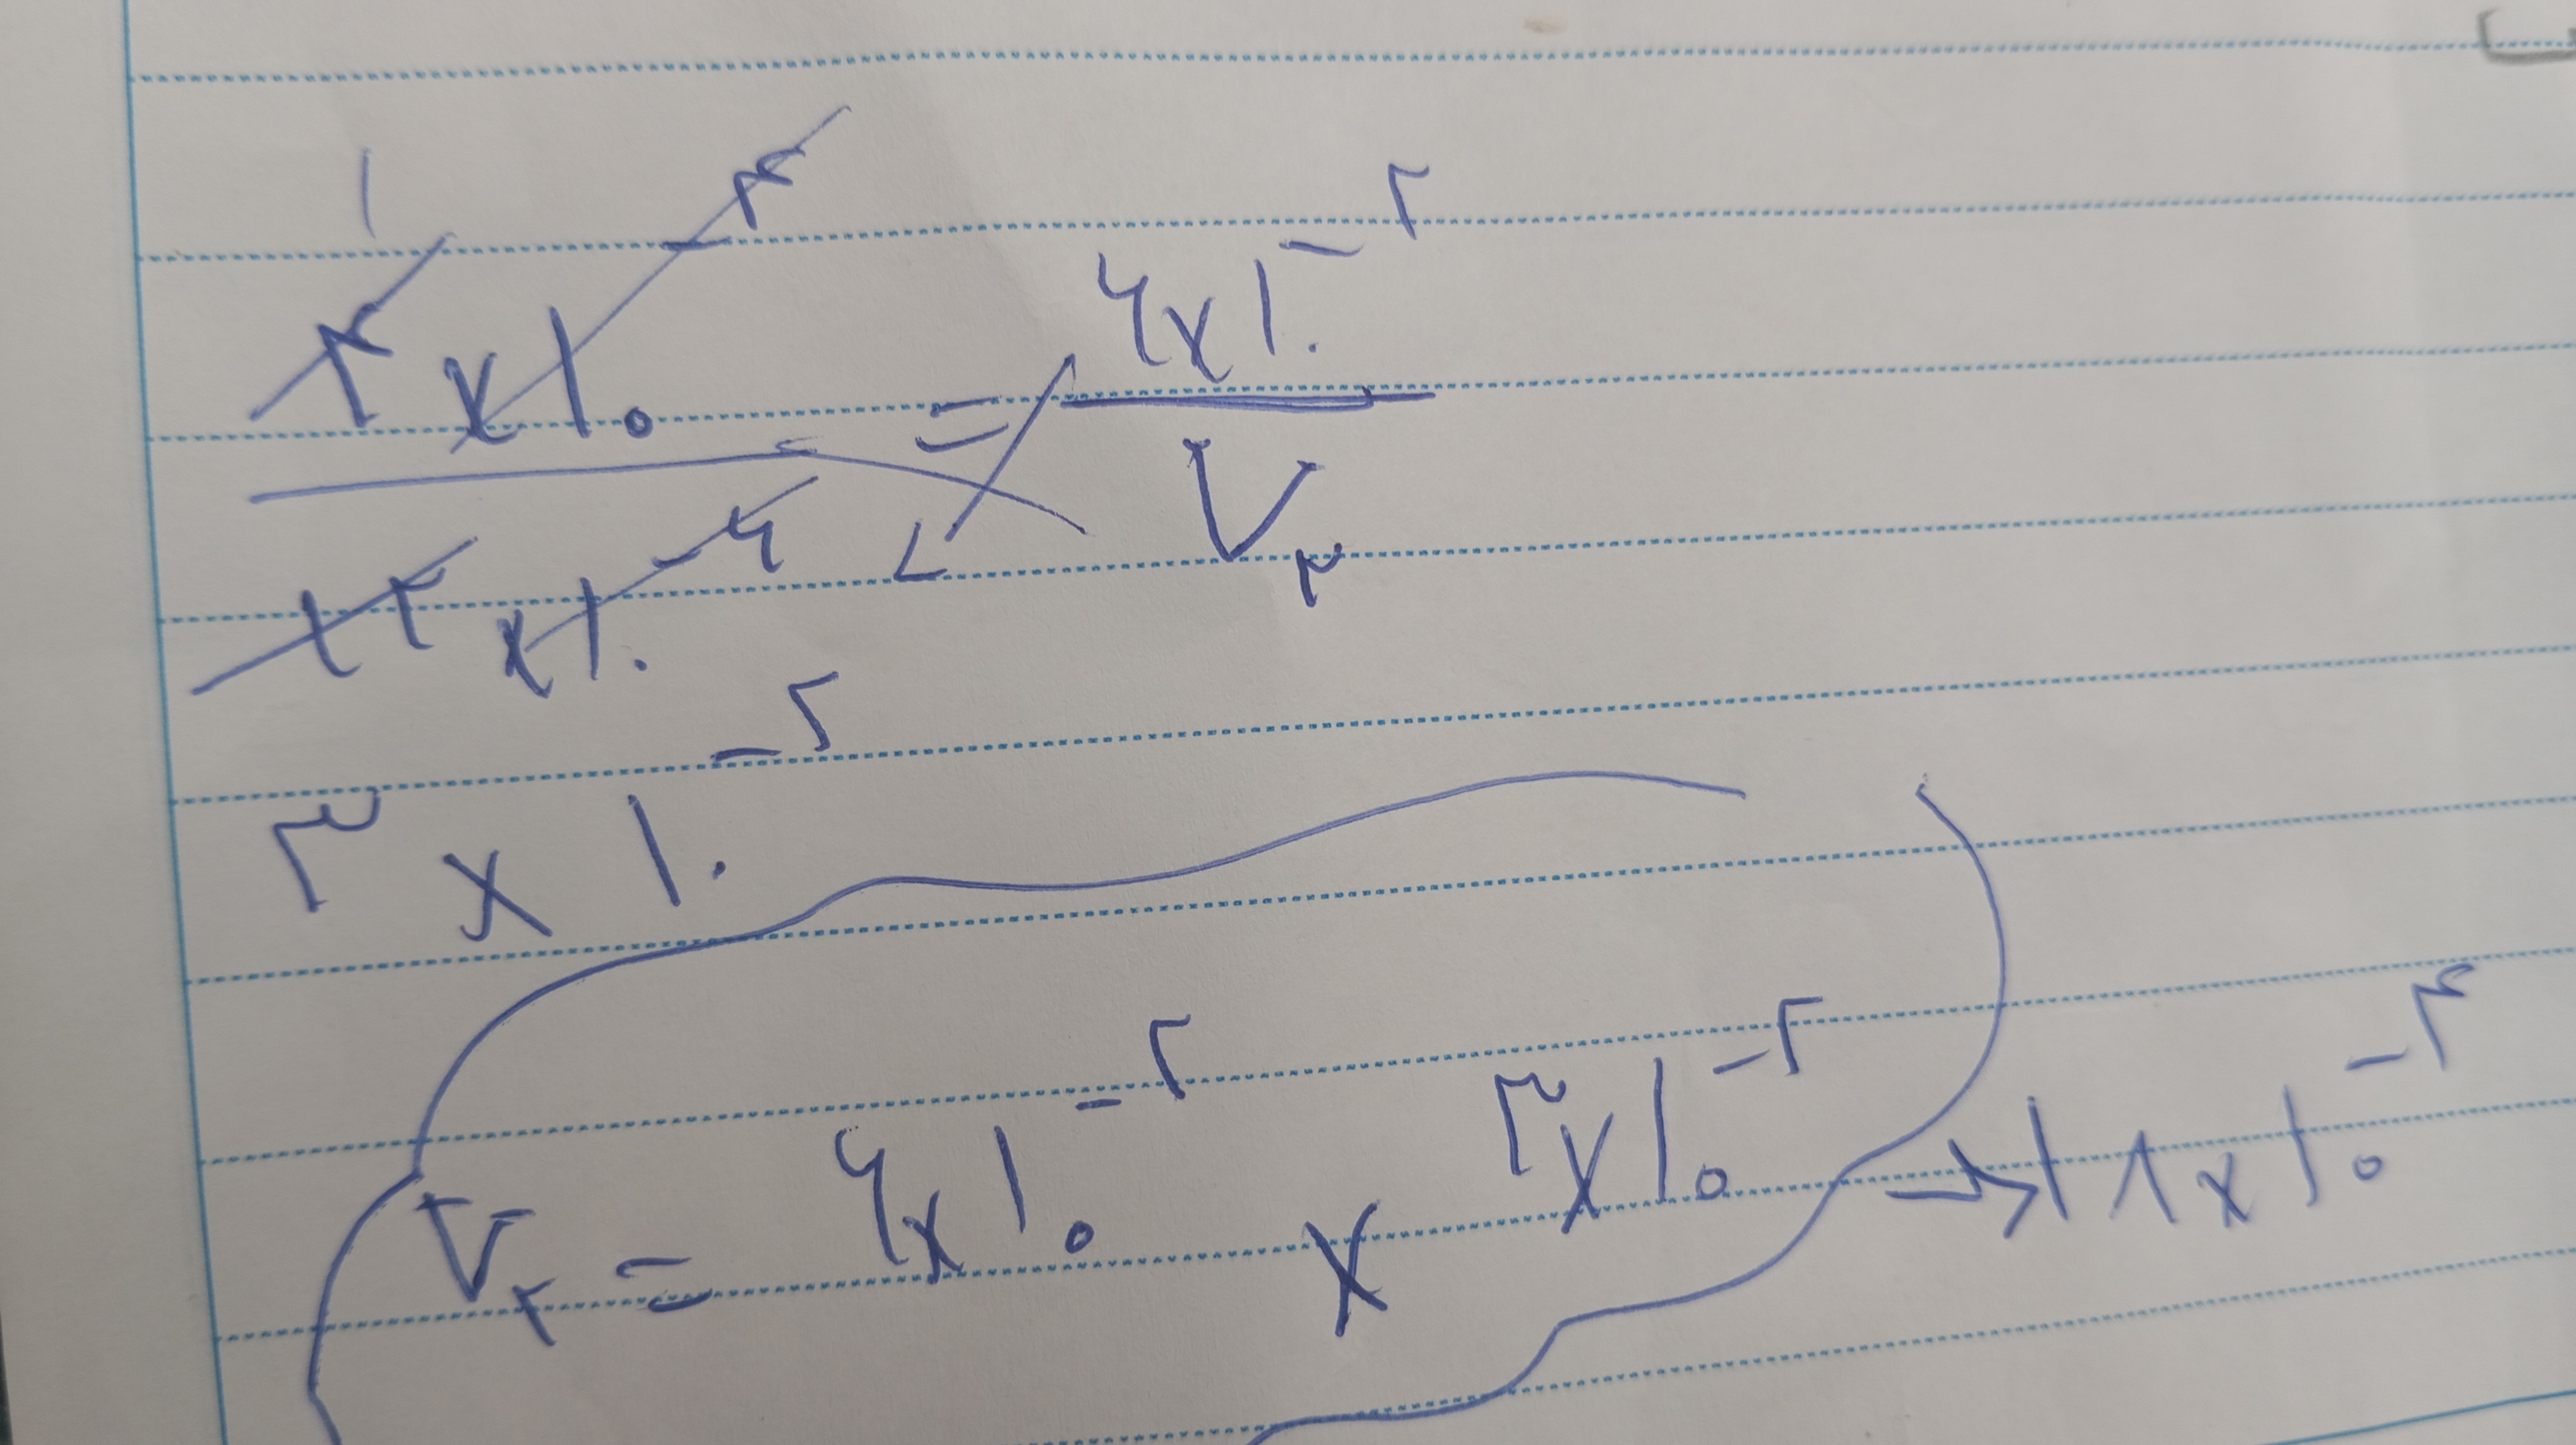 ۱
۴×۱۰⁻۴ / ۱۲×۱۰⁻۶ = ۶×۱۰⁻۲ / V۲
۳×۱۰⁻۲
V۲ = ۶×۱۰⁻۲ × ۳×۱۰⁻۲ → ۱۸×۱۰⁻۴